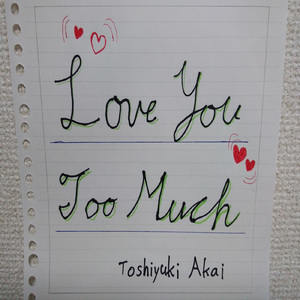 Love You
Too Much
Toshiyuki Akai